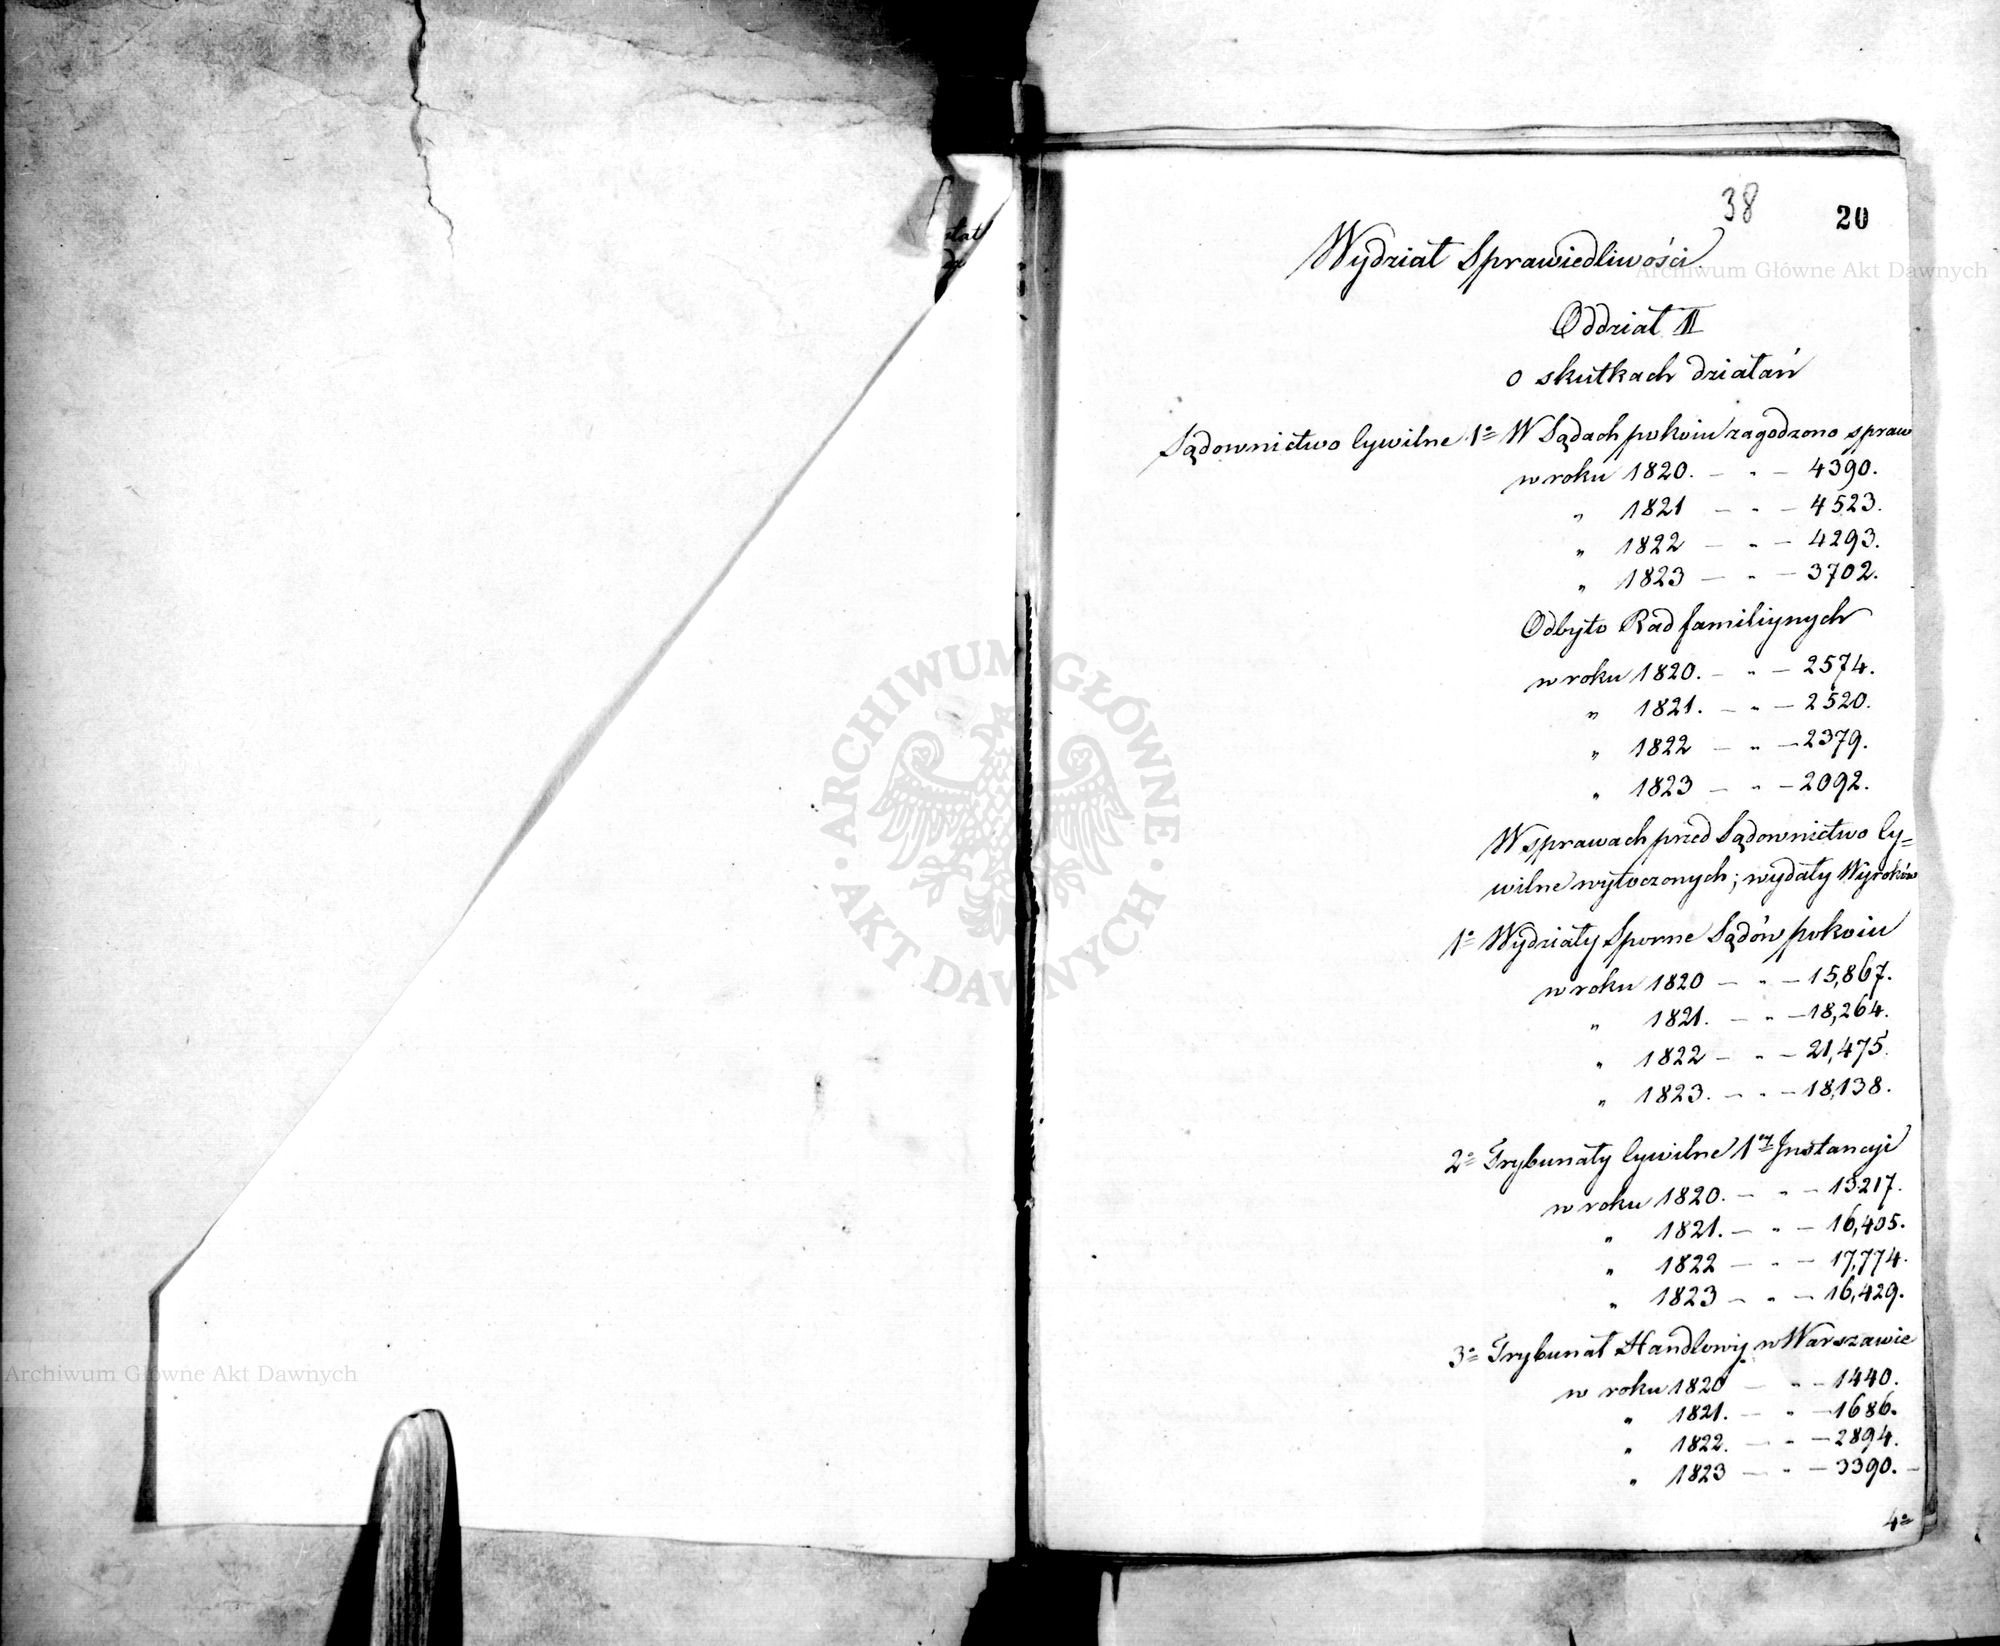 38
20
Wydział Sprawiedliwości.
Oddział II
o skutkach działań
Sądownictwo Cywilne 1º W Sądach pokoiu zagodzono spraw
w roku 1820. — " — 4390.
" 1821 — " — 4523.
" 1822 — " — 4293.
" 1823 — " — 3702.
Odbyto Rad familiynych
w roku 1820. — " — 2574.
" 1821. — " — 2520.
" 1822 — " — 2379.
" 1823 — " — 2092.
W sprawach przed Sądownictwo Cy=
wilne wytoczonych; wydały Wyroków
1º Wydziały Sporne Sądów pokoiu
w roku 1820 — " — 15,867.
" 1821. — " — 18,264.
" 1822 — " — 21,475.
" 1823. — " — 18,138.
2º Trybunały Cywilne 1ey Instancji
w roku 1820. — " — 13217.
" 1821. — " — 16,405.
" 1822 — " — 17,774.
" 1823 — " — 16,429.
3º Trybunał Handlowy w Warszawie
w roku 1820 — " — 1440.
" 1821. — " — 1686.
" 1822. — " — 2894.
" 1823 — " — 3390. —
4º
Archiwum Główne Akt Dawnych
ARCHIWUM GŁÓWNE AKT DAWNYCH
Archiwum Główne Akt Dawnych